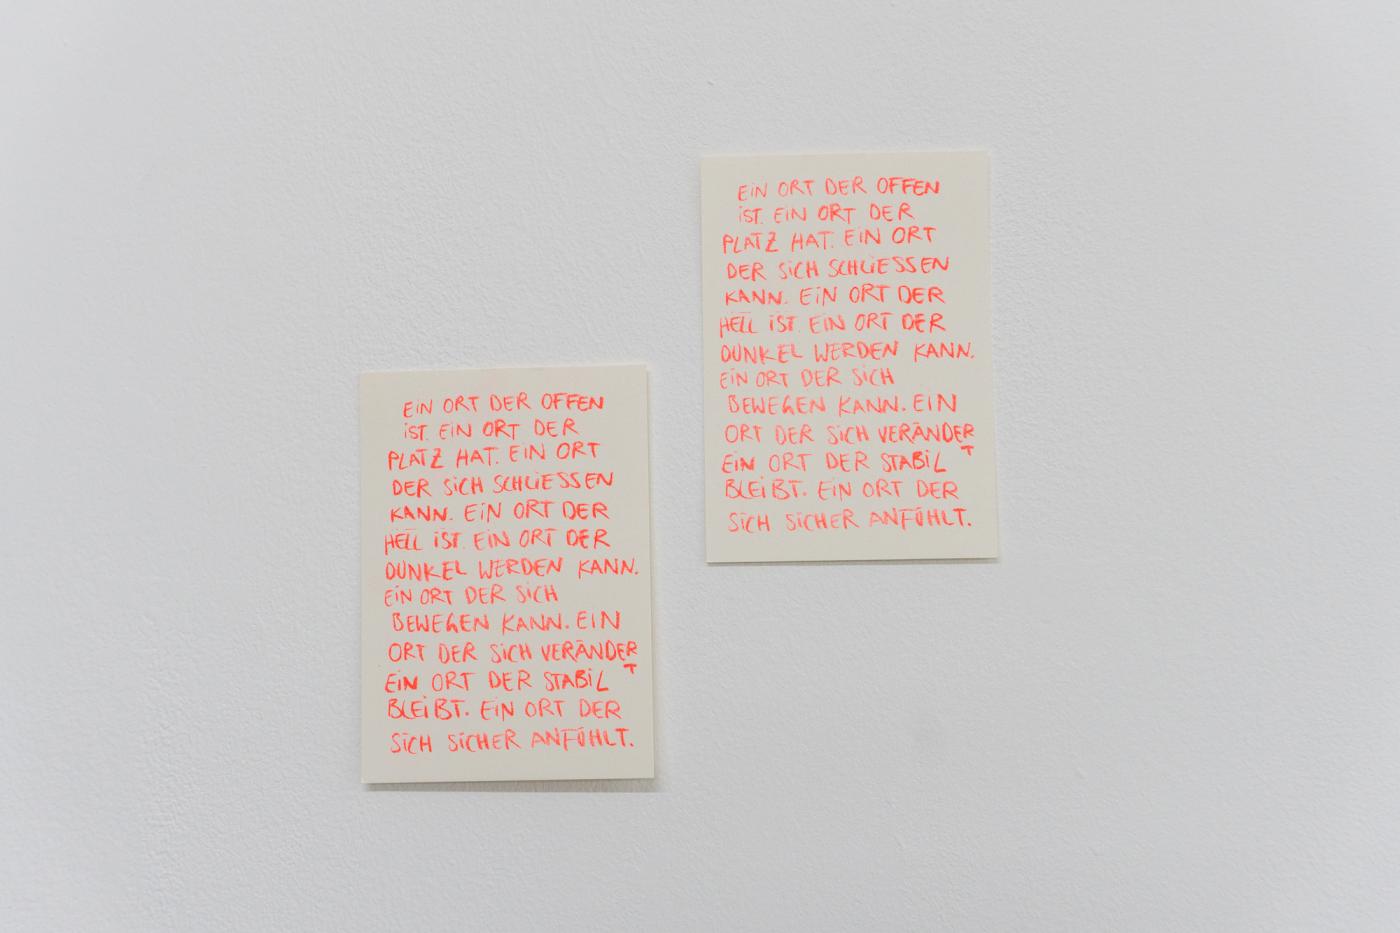 EIN ORT DER OFFEN
IST. EIN ORT DER
PLATZ HAT. EIN ORT
DER SICH SCHLIESSEN
KANN. EIN ORT DER
HELL IST. EIN ORT DER
DUNKEL WERDEN KANN.
EIN ORT DER SICH
BEWEGEN KANN. EIN
ORT DER SICH VERÄNDER
T
EIN ORT DER STABIL
BLEIBT. EIN ORT DER
SICH SICHER ANFÜHLT.
EIN ORT DER OFFEN
IST. EIN ORT DER
PLATZ HAT. EIN ORT
DER SICH SCHLIESSEN
KANN. EIN ORT DER
HELL IST. EIN ORT DER
DUNKEL WERDEN KANN.
EIN ORT DER SICH
BEWEGEN KANN. EIN
ORT DER SICH VERÄNDER
T
EIN ORT DER STABIL
BLEIBT. EIN ORT DER
SICH SICHER ANFÜHLT.